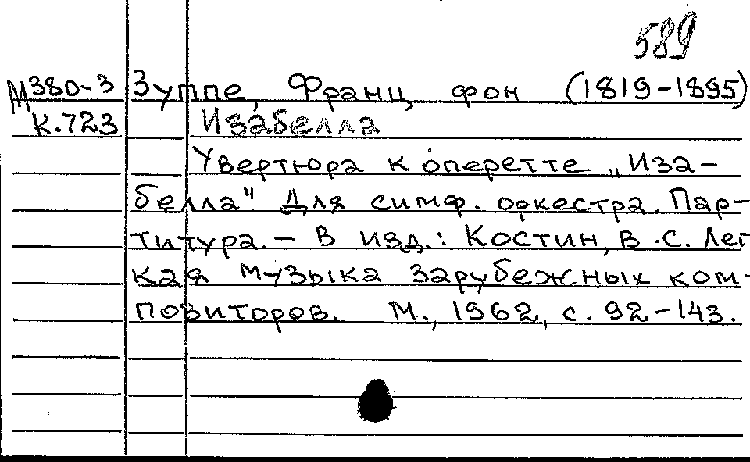 589
М380-3 Зуппе, Франц, фон (1819-1895)
К.723 Изабелла
Увертюра к оперетте „Иза-
белла" Для симф. оркестра. Пар-
титура. - В изд.: Костин, В.С. Лег
кая музыка зарубежных ком-
позиторов. М., 1962, с. 92-143.